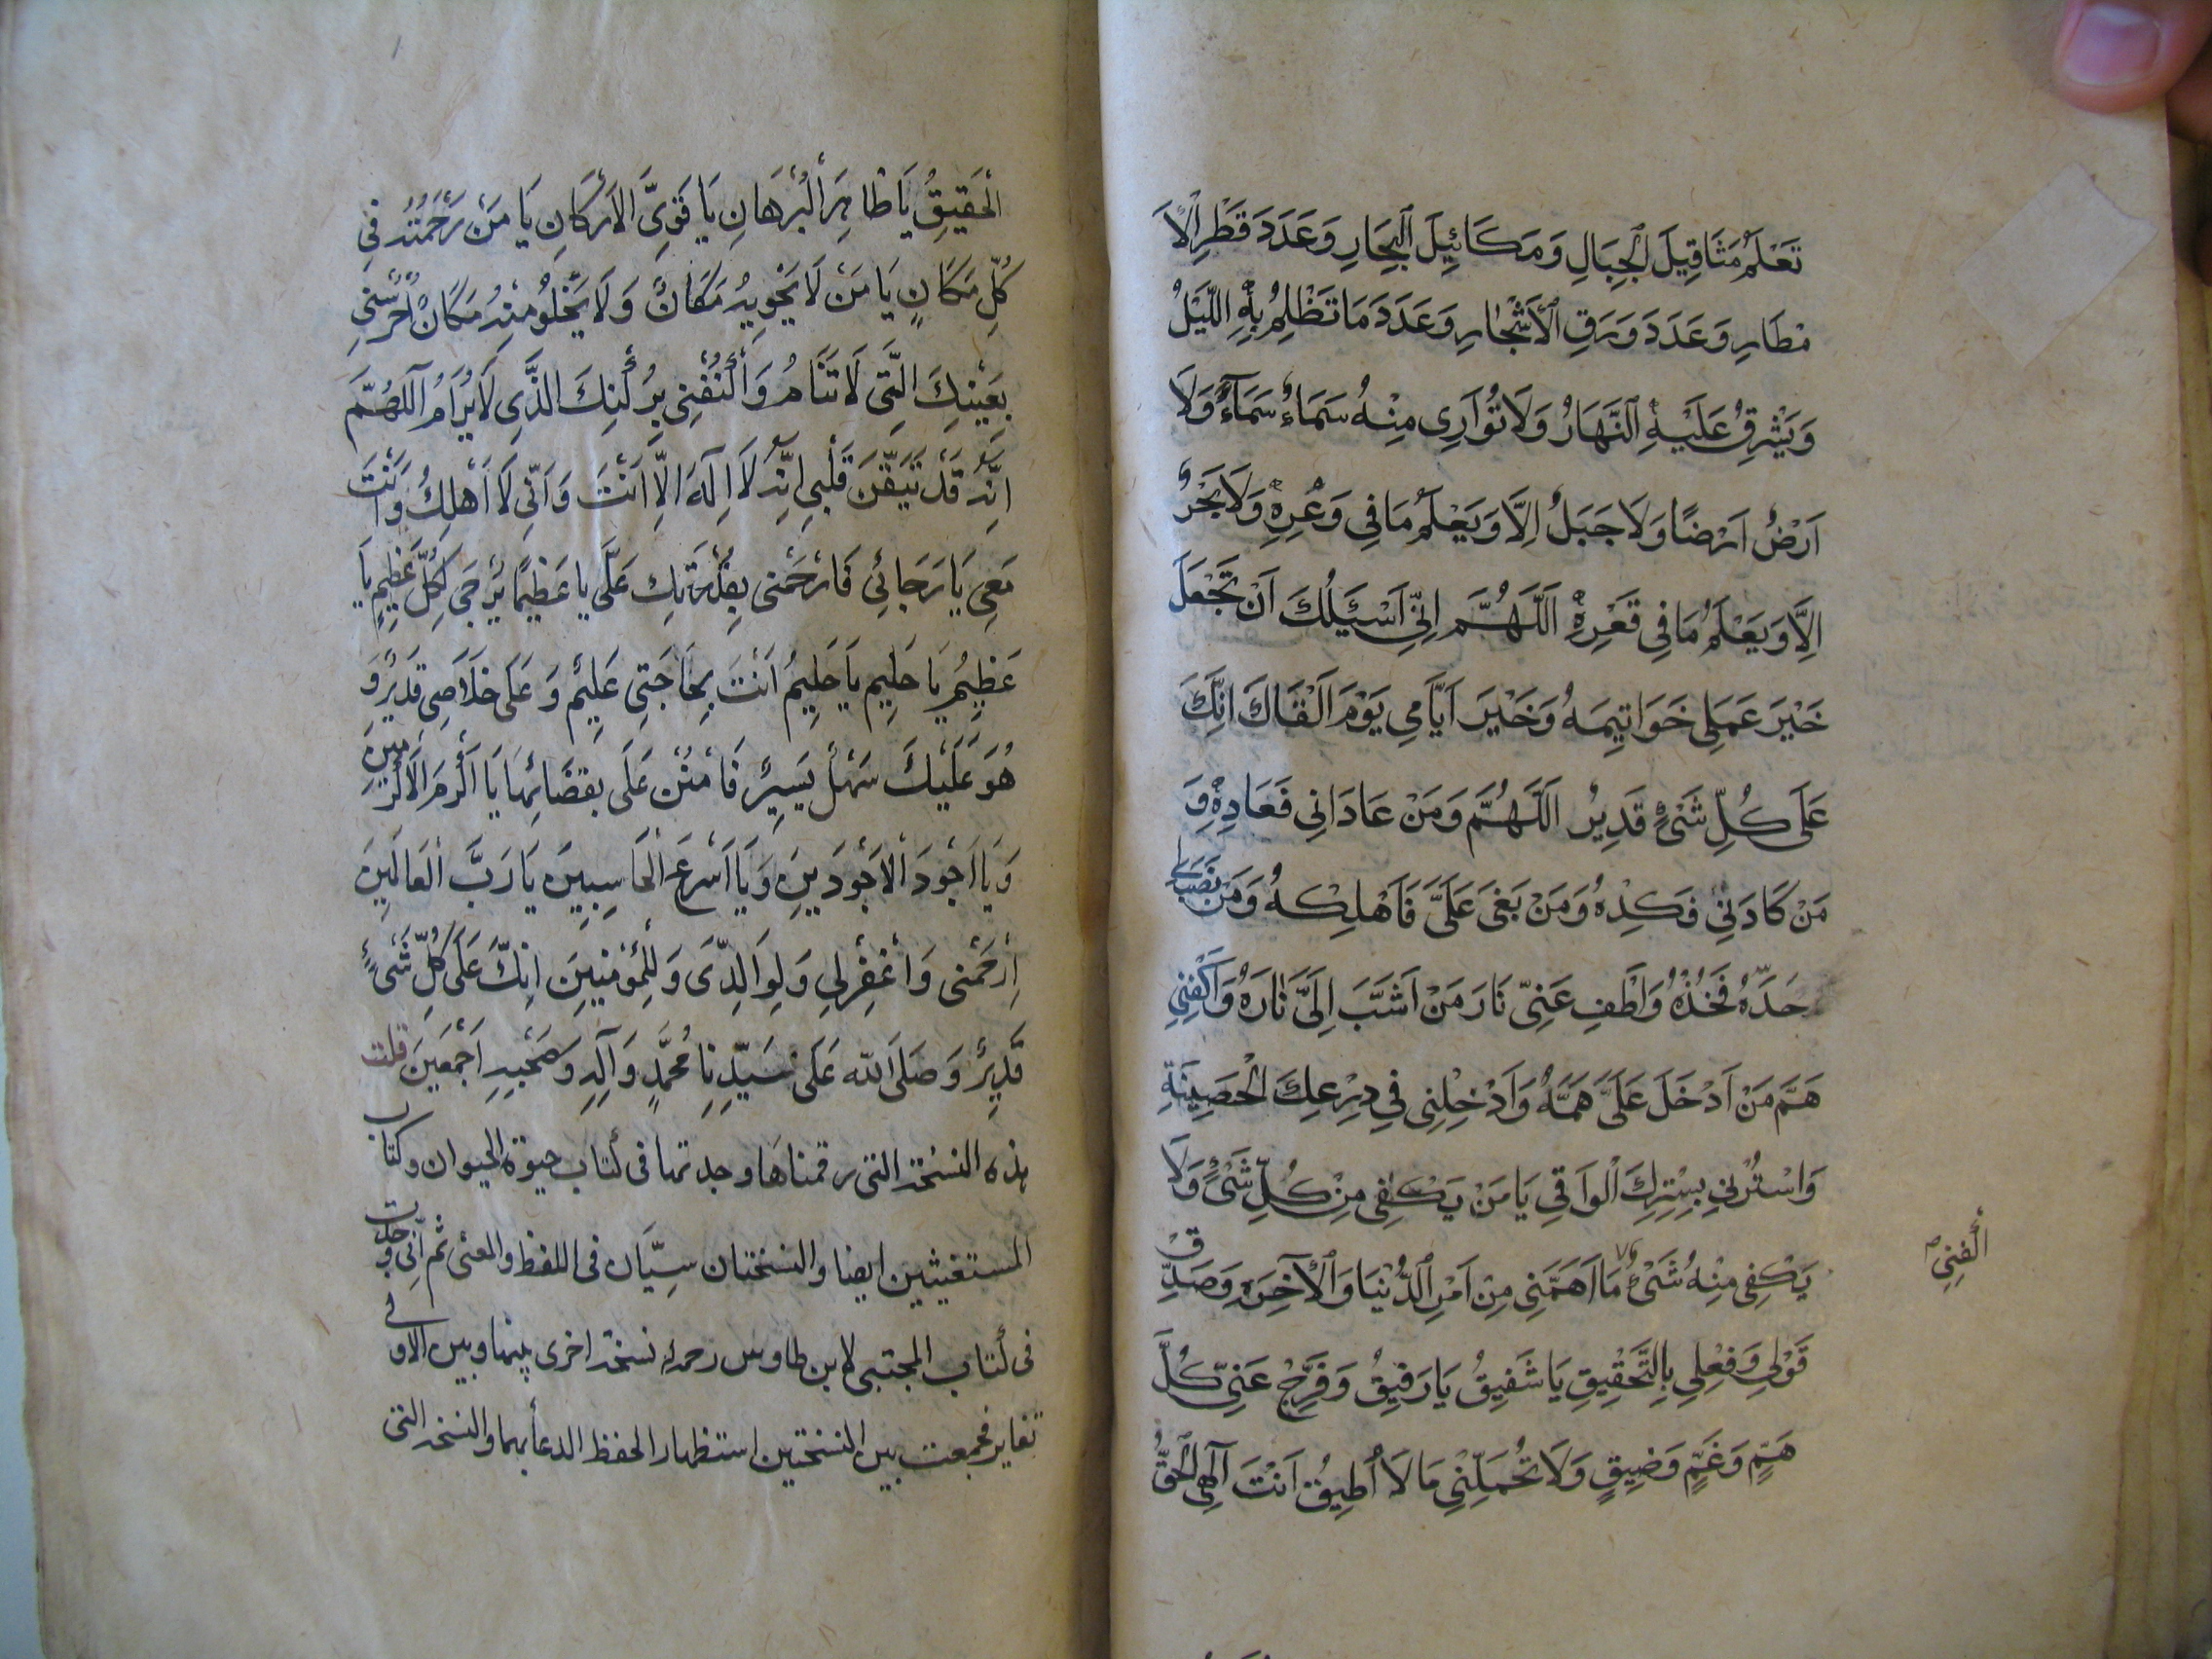 تَعْلَمُ مَثَاقِيلَ الْجِبَالِ وَمَكَائِيلَ الْبِحَارِ وَعَدَدَ قَطْرِ الْاَ
مْطَارِ وَعَدَدَ وَرَقِ الْأَشْجَارِ وَعَدَدَ مَا تَظْلِمُ بِهِ اللَّيْلُ
وَيَشْرِقُ عَلَيْهِ النَّهَارُ وَلَا تُوَارِى مِنْهُ سَمَاءٌ سَمَآءً وَلَا
اَرْضٌ اَرْضًا وَلَا جَبَلٌ اِلَّا وَيَعْلَمُ مَا فِى وَعْرِهِ وَلَا بَحْرٌ
اِلَّا وَيَعْلَمُ مَا فِى قَعْرِهِ اَللَّهُمَّ اِنِّى اَسْئَلُكَ اَنْ تَجْعَلَ
خَيْرَ عَمَلِى خَوَاتِيمَهُ وَخَيْرَ اَيَّامِى يَوْمَ اَلْقَاكَ اِنَّكَ
عَلَى كُلِّ شَىْءٍ قَدِيرٌ اَللَّهُمَّ وَمَنْ عَادَانِى فَعَادِهِ وَ
مَنْ كَادَنِى فَكِدْهُ وَمَنْ بَغَى عَلَىَّ فَاَهْلِكْهُ وَمَنْ نَصَبَ لِى
حَدَّهُ فَخُذْهُ وَاَطْفِ عَنِّى نَارَ مَنْ اَشَبَّ اِلَىَّ نَارَهُ وَاَكْفِنِى
هَمَّ مَنْ اَدْخَلَ عَلَىَّ هَمَّهُ وَاَدْخِلْنِى فِى دِرْعِكَ الْحَصِينَةِ
وَاسْتُرْنِى بِسِتْرِكَ الْوَاقِى يَا مَنْ يَكْفِى مِنْ كُلِّ شَىْءٍ وَلَا
يَكْفِى مِنْهُ شَىْءٌ مَا اَهَمَّنِى مِنْ اَمْرِ الدُّنْيَا وَالْآخِرَةِ وَصَدِّقْ
اكْفِنِى صح
قَوْلِى وَفِعْلِى بِالتَّحْقِيقِ يَا شَفِيقُ يَا رَفِيقُ وَفَرِّجْ عَنِّى كُلَّ
هَمٍّ وَغَمٍّ وَضِيقٍ وَلَا تُحَمِّلْنِى مَا لَا اُطِيقُ اَنْتَ اِلٰهِى الْحَقُّ
الْحَقِيقُ يَا ظَاهِرَ الْبُرْهَانِ يَا قَوِىَّ الْاَرْكَانِ يَا مَنْ رَحْمَتُهُ فِى
كُلِّ مَكَانٍ يَا مَنْ لَا يَحْوِيهُ مَكَانٌ وَلَا يَخْلُو مِنْهُ مَكَانٌ اُحْرُسْنِى
بِعَيْنِكَ الَّتِى لَا تَنَامُ وَاكْنُفْنِى بِرُكْنِكَ الَّذِى لَا يُرَامُ اَللّٰهُمَّ
اِنَّهُ قَدْ تَيَقَّنَ قَلْبِى اِنَّهُ لَا اِلٰهَ اِلَّا اَنْتَ وَاَنِّى لَا اَهْلِكُ وَاَنْتَ
مَعِى يَا رَجَائِى فَارْحَمْنِى بِقُدْرَتِكَ عَلَىَّ يَا عَظِيمًا يُرْجَى لِكُلِّ عَظِيمٍ يَا
عَظِيمُ يَا حَلِيمُ يَا حَلِيمُ اَنْتَ بِحَاجَتِى عَلِيمٌ وَعَلَى خَلَاصِى قَدِيرٌ وَ
هُوَ عَلَيْكَ سَهْلٌ يَسِيرٌ فَامْنُنْ عَلَى بِقَضَائِهَا يَا اَكْرَمَ الْاَكْرَمِينَ
وَيَا اَجْوَدَ الْاَجْوَدِينَ وَيَا اَسْرَعَ الْحَاسِبِينَ يَا رَبَّ الْعَالَمِينَ
اِرْحَمْنِى وَاغْفِرْ لِى وَلِوَالِدَىَّ وَلِلْمُؤْمِنِينَ اِنَّكَ عَلَى كُلِّ شَىْءٍ
قَدِيرٌ وَصَلَى اللّٰه عَلَى سَيِّدِنَا مُحَمَّدٍ وَآلِهِ وَصَحْبِهِ اَجْمَعِينَ قلت
هذه النسخة التى رقمناها وجدتها فى كتاب حيوة الحيوان وكتاب
المستغيثين ايضا والنسختان سِيَّان فى اللفظ والمعنى ثم اِنّى وجدت
فى كتاب المجتبى لابن طاوس رحمه الله نسخة اخرى بينها وبين الاولى
تغاير فجمعت بين النسختين استظهارا لحفظ الدعأ بهما والنسخة التى